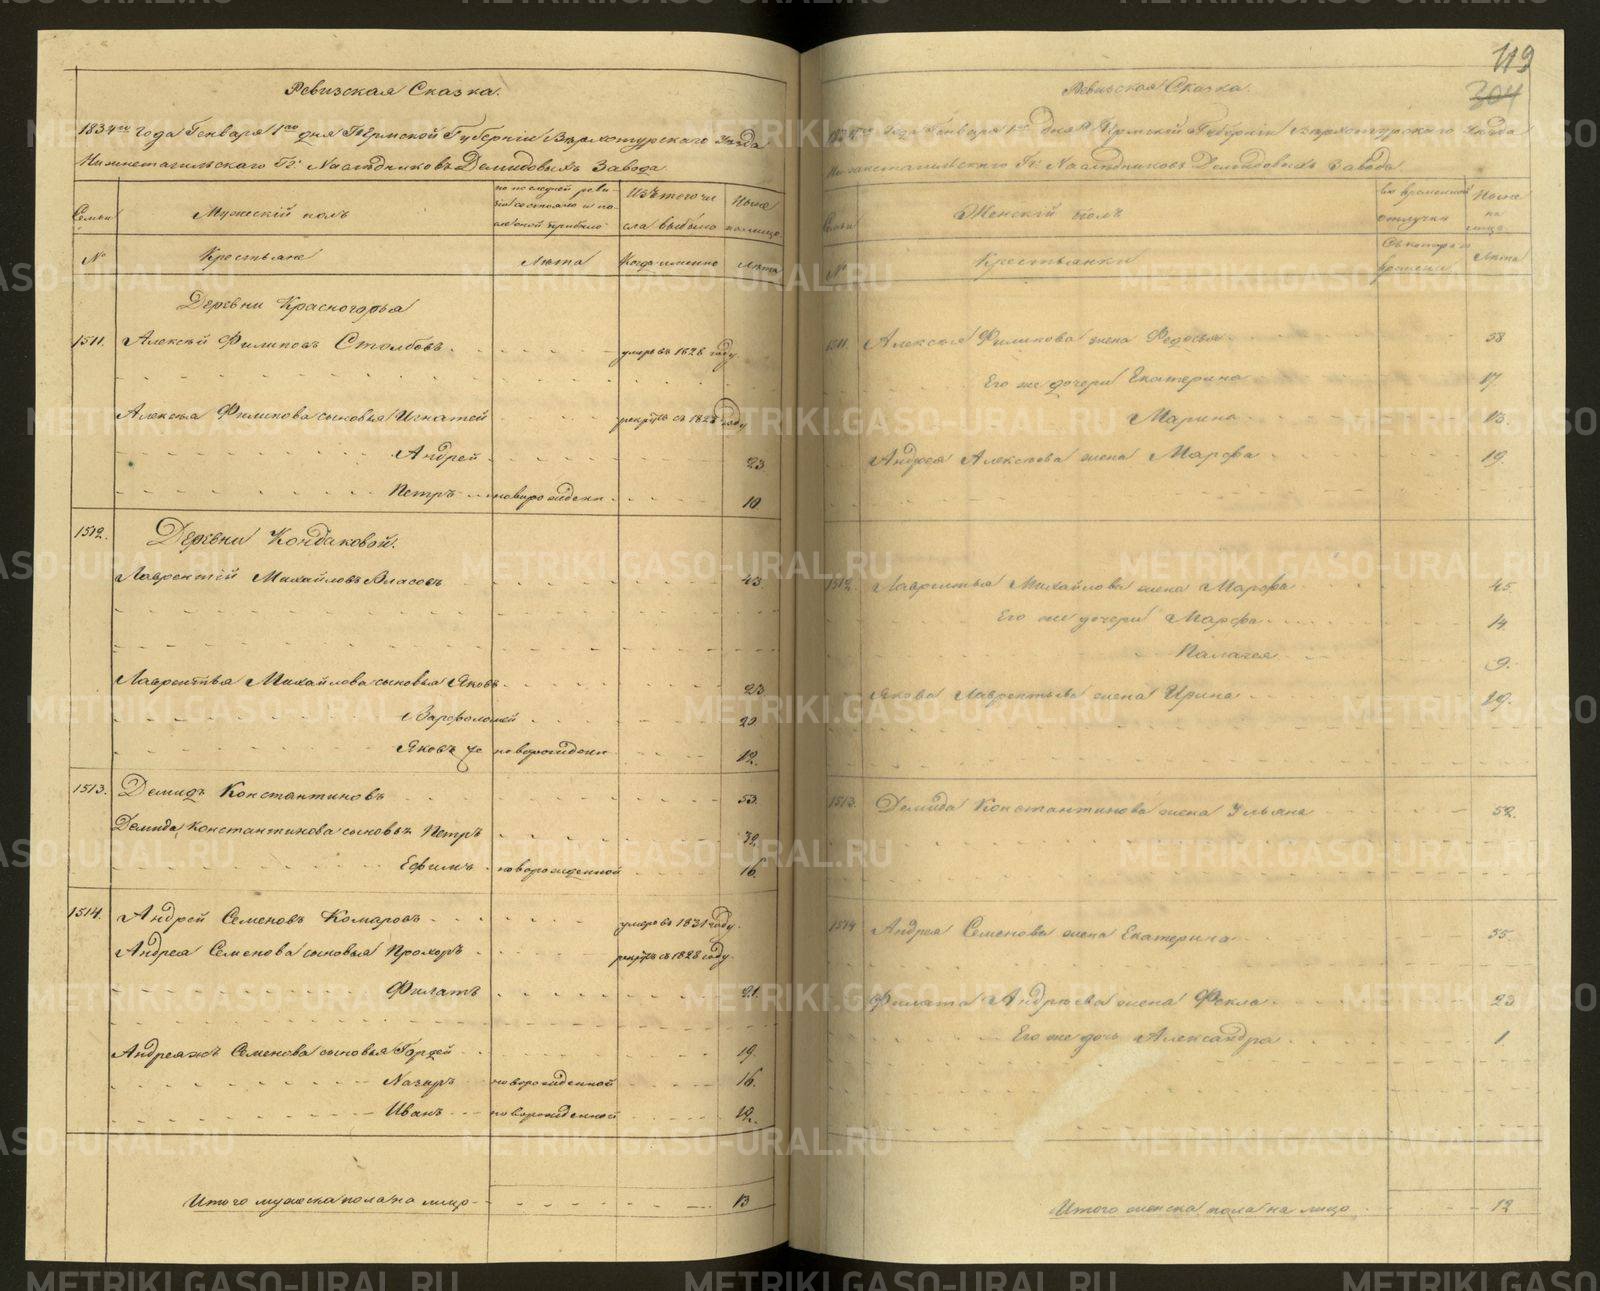 Ревизская Сказка.
1834го года Генваря 1го дня Пермской Губернии Верхотурскаго Уезда
Нижнетагильскаго Гг: Наследниковъ Демидовыхъ Завода
Семьи
Мужескій полъ
по последней реви-
зіи состояло и по-
сле оной прибыло
Изъ того чи
сла выбыло
Ныне
на лицо
№
Крестьяне
Лета
Когда именно
Лета
Деревни Красногорья
1511. Алексей Филиповъ Столбовъ умеръ въ 1828 году
Алексея Филипова сыновья Игнатей рекрутъ съ 1828 году
Андрей 23
Петръ новорожденн 10
1512. Деревни Кондаковой.
Лаврентій Михайловъ Власовъ 43.
Лаврентья Михайлова сыновья Яковъ 23
Варфоломей 20.
Яковъ же новорожденн 12.
1513. Демидъ Константиновъ 53.
Демида Константинова сыновья Петръ 32.
Ефимъ новорожденной 16.
1514. Андрей Семеновъ Комаровъ умеръ въ 1831 году.
Андрея Семенова сыновья Прохоръ рекрутъ съ 1828 году.
Филатъ 21.
Андрея жъ Семенова сыновья Гордей 19.
Назаръ новорожденной 16.
Иванъ новорожденной 12.
Итого мужеска пола на лицо 13
119
304
Ревизская Сказка.
1834го года Генваря 1го дня Пермской Губерніи Верхотурскаго Уезда
Нижнетагильскаго Гг: Наследниковъ Демидовыхъ Завода
Семьи
Женскій полъ
во временной
отлучки
Ныне
на
лицо
№
Крестьянки
Съ котораго
времени
Лета
1511. Алексея Филипова жена Федосья 58
Его же дочери Екатерина 17.
Марина 13.
Андрея Алексеева жена Марфа 19.
1512. Лаврентья Михайлова жена Марфа 45.
Его же дочери Марфа 14.
Палагея 9.
Якова Лаврентьева жена Ирина 19.
1513. Демида Константинова жена Ульяна 52.
1514 Андрея Семенова жена Екатерина 55.
Филата Андреева жена Фекла 23
Его же дочь Александра 1
Итого женска пола на лицо 12
METRIKI.GASO-URAL.RU